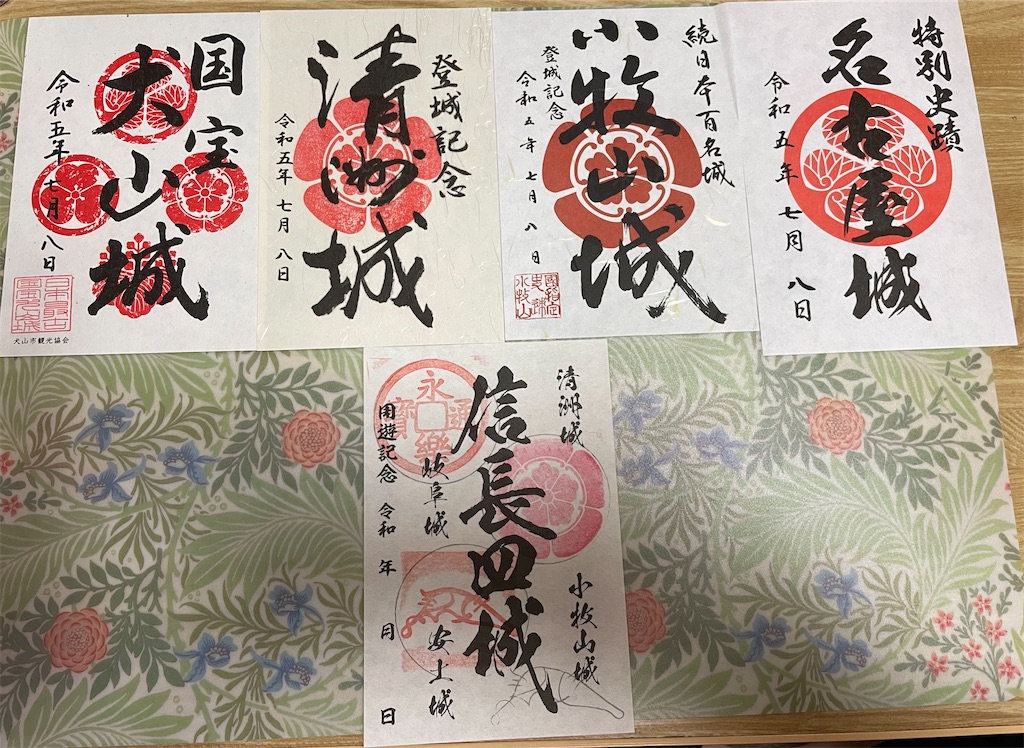 国宝
犬山城
令和五年七月八日
犬山市観光協会
登城記念
清洲城
令和五年七月八日
続日本百名城
小牧山城
登城記念
令和五年七月八日
国指定
史跡
小牧山
特別史蹟
名古屋城
令和五年七月八日
清洲城
小牧山城
信長四城
岐阜城
安土城
永楽通寳
周遊記念 令和 年 月 日